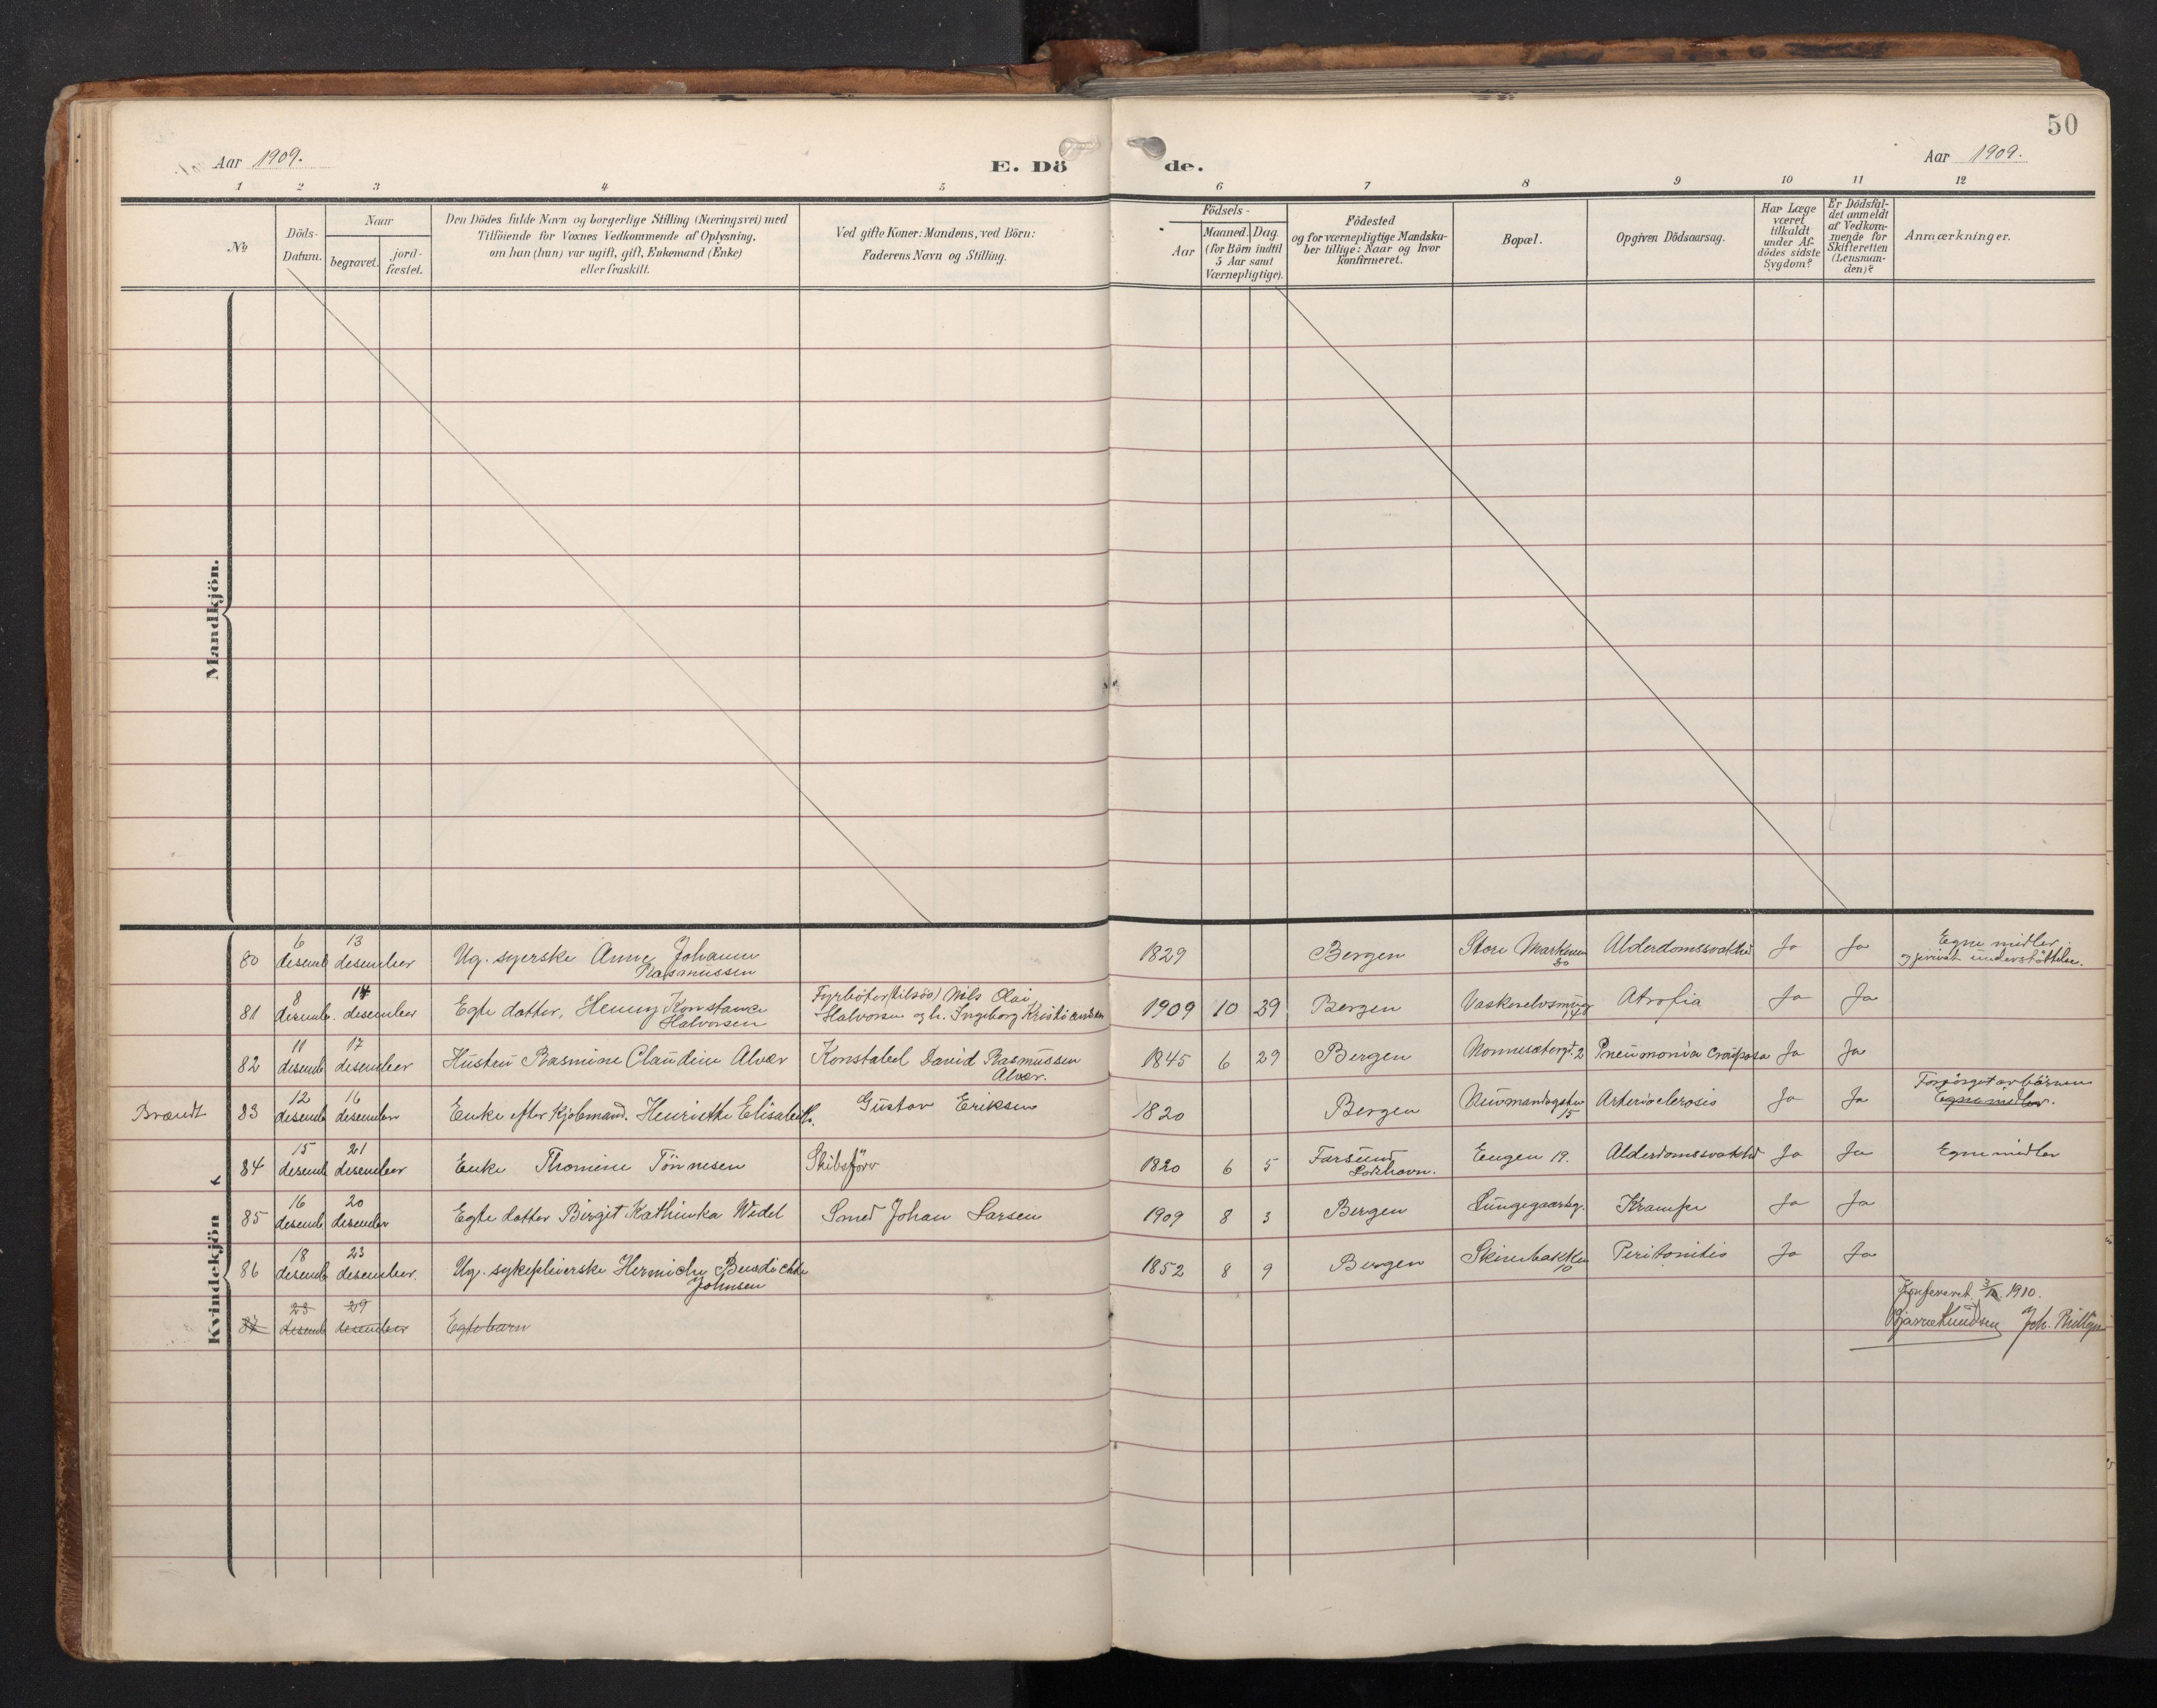 50
Aar 1909.
E. Dö de.
Aar 1909.
1 2 3 4 5 6 7 8 9 10 11 12
No
Döds-
Datum.
Naar
begravet.
jord-
fæstet.
Den Dödes fulde Navn og borgerlige Stilling (Næringsvei) med
Tilföiende for Voxnes Vedkommende af Oplysning,
om han (hun) var ugift, gift, Enkemand (Enke)
eller fraskilt.
Ved gifte Koner: Mandens, ved Börn:
Faderens Navn og Stilling.
Födsels-
Aar
Maaned. Dag.
(for Börn indtil
5 Aar samt
Værnepligtige).
Födested
og for værnepligtige Mandska-
ber tillige: Naar og hvor
konfirmeret.
Bopæl.
Opgiven Dödsaarsag.
Har Læge
været
tilkaldt
under Af-
dödes sidste
Sygdom?
Er Dödsfal-
det anmeldt
af Vedkom-
mende for
Skifteretten
(Lensman-
den)?
Anmærkninger.
Mandkjön.
Kvindekjön
80
6 desemb
13 desember
Ug. syerske Anne Johanne
Rasmussen
1829
Bergen
Store Markevei
30
Alderdomssvakhed
Ja
Ja
Egne midler
og privat understöttelse.
81
8 desemb.
14 desember
Egte datter, Henny Konstance
Halvorsen
Fyrböter (tilsös) Nils Olai
Halvorsen og h. Ingeborg Kristiansen
1909 10 29
Bergen
14
Atrofia
Ja
Ja
82
11 desemb
17 desember
Hustru Rasmine Claudine Alvær
Konstabel David Rasmussen
Alvær.
1845 6 29
Bergen
Nonnesætergt. 2
Pneumonia crouposa
Ja
Ja
Brandt
83
12 desemb
16 desember
Enke efter Kjöbmand. Henriette Elisabeth.
Gustav Eriksen
1820
Bergen
15
Arteriosclerosis
Ja
Ja
Forsörget av börnene
Egne midler.
84
15 desemb
21 desember
Enke Thomine Tönnesen
Skibsförer
1820 6 5
Farsund
Engen 19.
Alderdomssvakhed
Ja
Ja
Egne midler
85
16 desemb
20 desember
Egte datter Birgit Kathinka Wedel
Smed Johan Larsen
1909 8 3
Bergen
Lungegaardsg.
Krampe
Ja
Ja
86
18 desemb
23 desember.
Ug. sykepleierske Hermiche Benedichte
Johnsen
1852 8 9
Bergen
Skivebakken
10
Peritonitis
Ja
Ja
87
23 desemb
29 desember
Egtebarn
Konfereret 3/10 1910.
Bjarne Knudsen